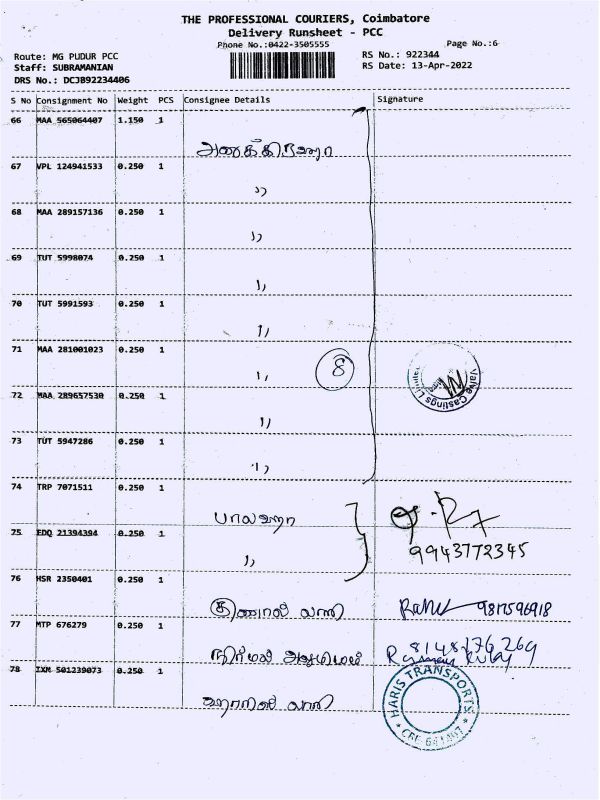 THE PROFESSIONAL COURIERS, Coimbatore
Delivery Runsheet - PCC
Phone No.:0422-3505555
Page No.:6
Route: MG PUDUR PCC
RS No.: 922344
Staff: SUBRAMANIAN
RS Date: 13-Apr-2022
DRS No.: DCJB92234406
S No Consignment No Weight PCS Consignee Details Signature
66 MAA 565064407 1.150 1
67 VPL 124941533 0.250 1
,,
68 MAA 289157136 0.250 1
,,
69 TUT 5998074 0.250 1
,,
70 TUT 5991593 0.250 1
,,
71 MAA 281001023 0.250 1
,, 8
Valve Castings
72 MAA 289657530 0.250 1
,,
73 TUT 5947286 0.250 1
,,
74 TRP 7071511 0.250 1
பாலஜா
75 EDQ 21394394 0.250 1
,, 9943772345
76 HSR 2350401 0.250 1
77 MTP 676279 0.250 1
நிர்மல்
78 IXM 501239073 0.250 1
ஹாரிஸ்
HARIS TRANSPORTS